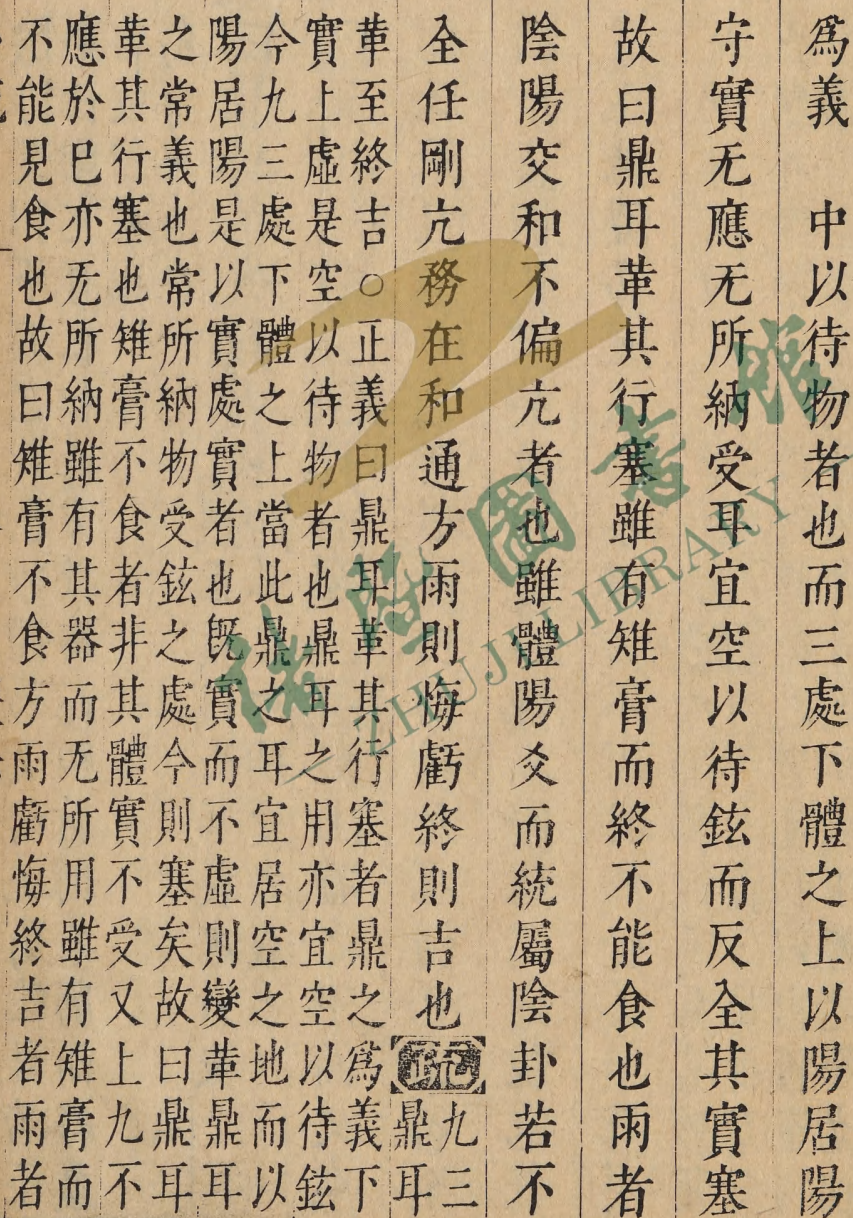 爲義　中以待物者也而三處下體之上以陽居陽
守實无應无所納受耳宜空以待鉉而反全其實塞
故曰鼎耳革其行塞雖有雉膏而終不能食也雨者
陰陽交和不偏亢者也雖體陽爻而統屬陰卦若不
全任剛亢務在和通方雨則悔虧終則吉也疏九三
鼎耳
革至終吉○正義曰鼎耳革其行塞者鼎之爲義下
實上虛是空以待物者也鼎耳之用亦宜空以待鉉
今九三處下體之上當此鼎之耳宜居空之地而以
陽居陽是以實處實者也旣實而不虛則變革鼎耳
之常義也常所納物受鉉之處今則塞矣故曰鼎耳
革其行塞也雉膏不食者非其體實不受又上九不
應於巳亦无所納雖有其器而无所用雖有雉膏而
不能見食也故曰雉膏不食方雨虧悔終吉者雨者
諸暨圖書館
ZHUJI LIBRARY